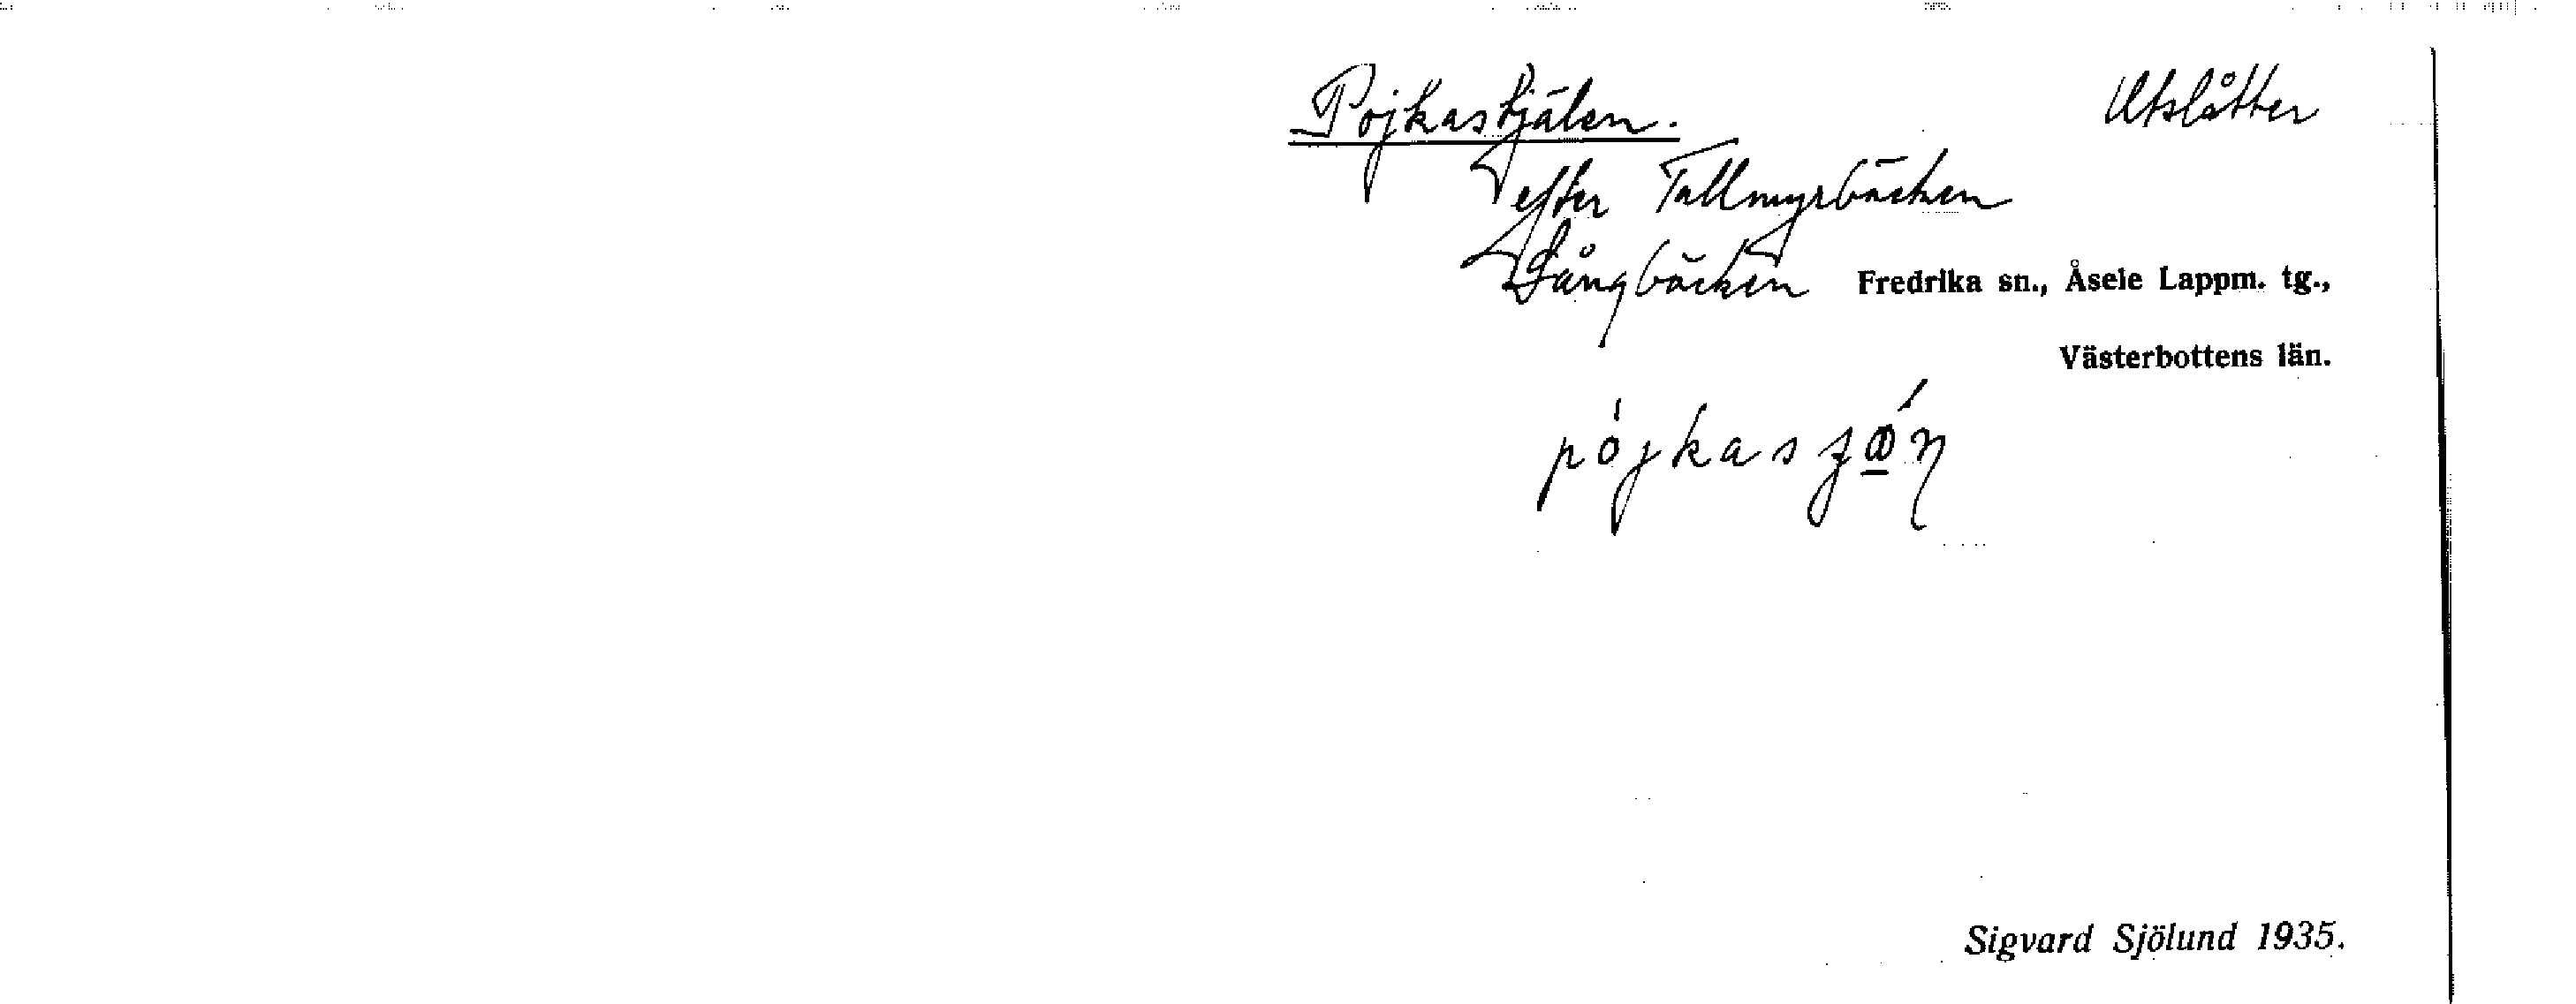 Pojkastjälen.
Utslåtter
efter Tallmyrbäcken
Långbäcken
Fredrika sn., Åsele Lappm. tg.,
Västerbottens län.
Sigvard Sjölund 1935.